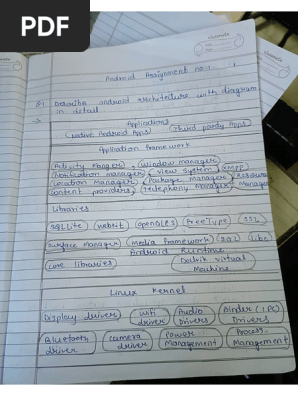 PDF
classmate
classmate
Android Assignment no-1.
Q1 Describe android architecture with diagram
in detail
→
Applications
Native Android Apps Third party Apps
Application framework
Activity Manger, Window Manager
Notification manager View System XMPP
Location Manager Package Manager Resource
Content providers Telephony Manager Manager
Libraries
SQLite webkit OpenGLES FreeType SSL
Surface Manager Media framework SGL libc
Android Runtime
Core libraries Dalvik Virtual
Machine
Linux Kernel
Display driver wifi driver Audio Drivers Binder (IPC) Drivers
Bluetooth driver Camera driver Power Management Process Management